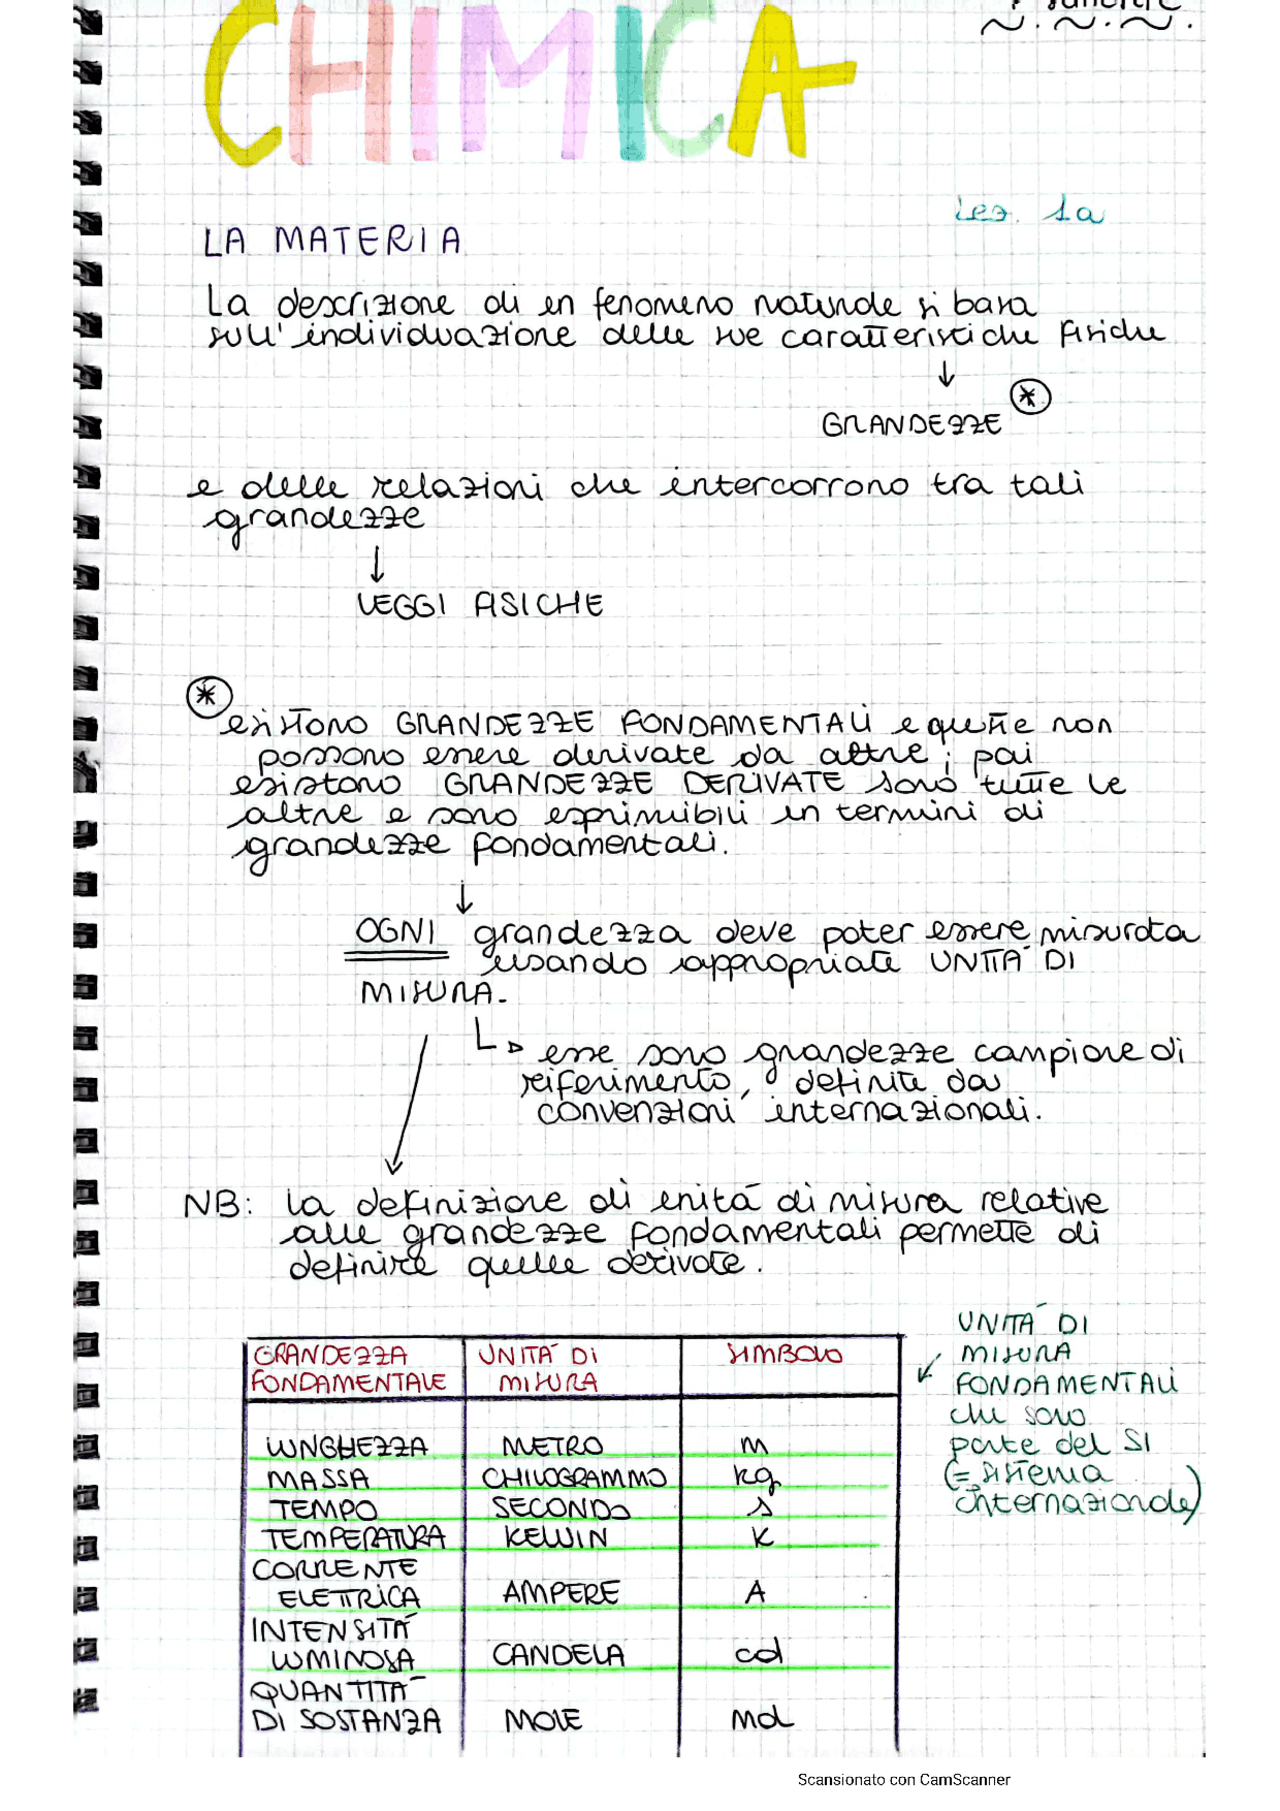 CHIMICA
Lez. 1a
LA MATERIA
La descrizione di un fenomeno naturale si basa
sull'individuazione delle sue caratteristiche fisiche
↓
GRANDEZZE *
e delle relazioni che intercorrono tra tali
grandezze
↓
LEGGI FISICHE
* esistono GRANDEZZE FONDAMENTALI e queste non
possono essere derivate da altre; poi
esistono GRANDEZZE DERIVATE sono tutte le
altre e sono esprimibili in termini di
grandezze fondamentali.
↓
OGNI grandezza deve poter essere misurata
usando appropriate UNITÀ DI
MISURA.
esse sono grandezze campione di
riferimento, definite da
convenzioni internazionali.
NB: la definizione di unità di misura relative
alle grandezze fondamentali permette di
definire quelle derivate.
GRANDEZZA FONDAMENTALE UNITÀ DI MISURA SIMBOLO
LUNGHEZZA METRO m
MASSA CHILOGRAMMO kg
TEMPO SECONDO s
TEMPERATURA KELVIN K
CORRENTE
ELETTRICA AMPERE A
INTENSITÀ
LUMINOSA CANDELA cd
QUANTITÀ
DI SOSTANZA MOLE mol
UNITÀ DI
MISURA
FONDAMENTALI
che sono
parte del SI
(= sistema
internazionale)
Scansionato con CamScanner